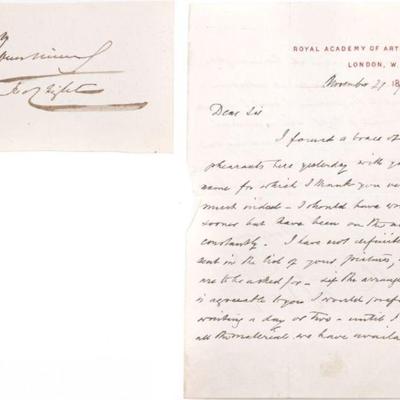 ROYAL ACADEMY OF ART
LONDON, W.
November 21 18
Dear Sir
I found a brace of
pheasants here yesterday with yo
name for which I thank you ver
much indeed – I should have w
sooner but have been on the m
constantly. I have not definite
sent in the list of your pictures,
are to be asked for – if the arrang
is agreeable to you I would pref
waiting a day or two – until I
all the material we have availa